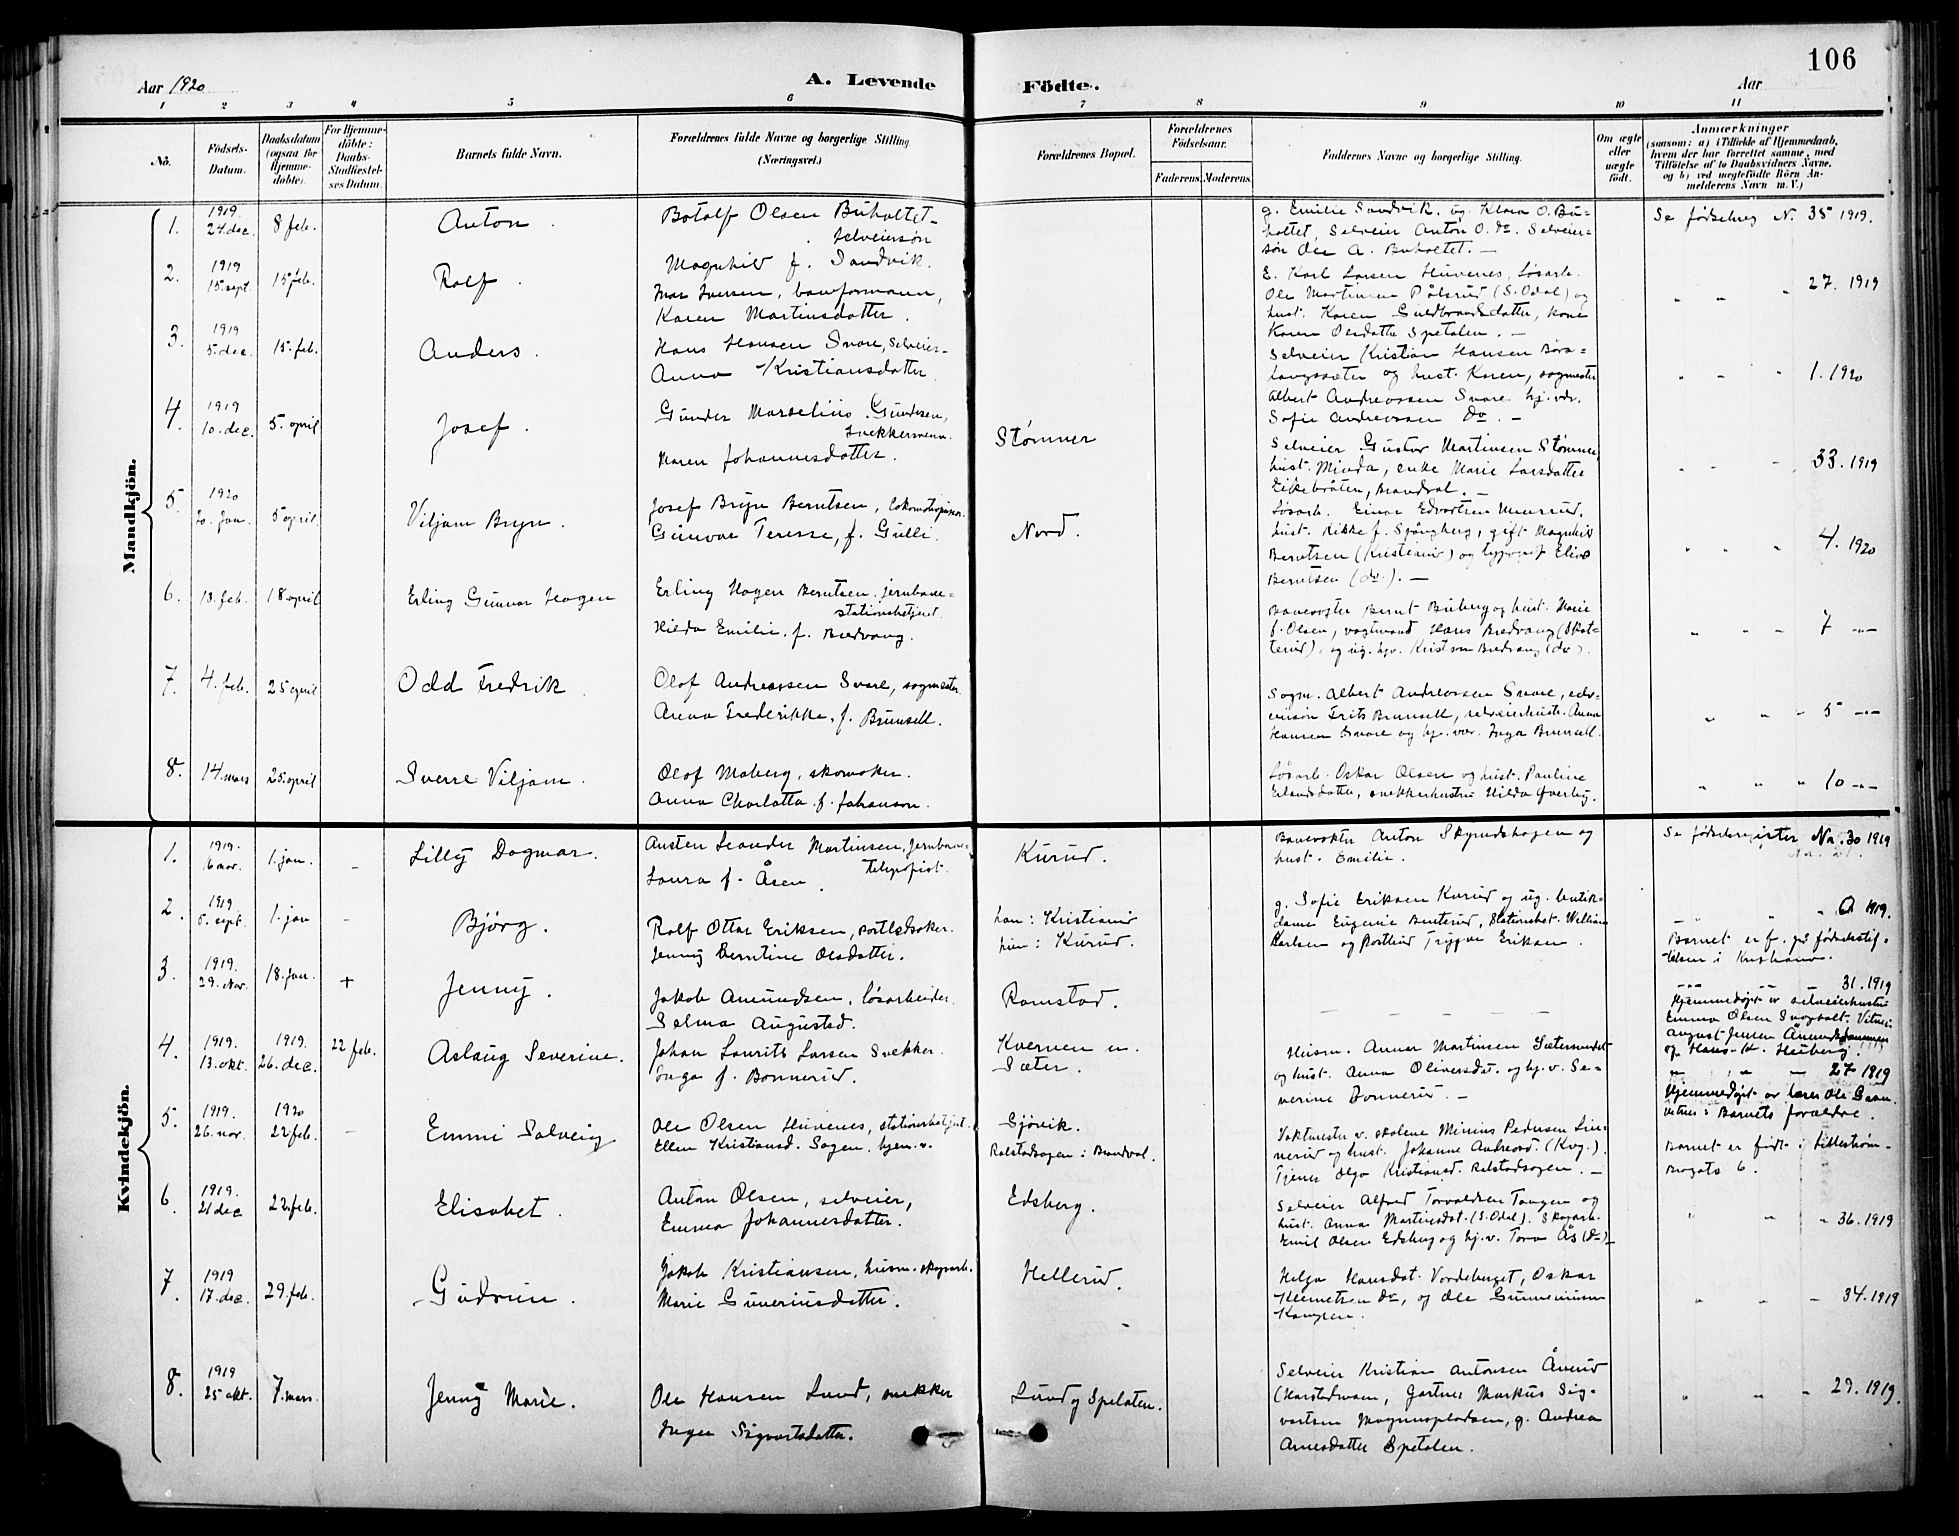 106
Aar 1920
A. Levende
Födte.
Aar
1 2 3 4 5 6 7 8 9 10 11
Nô.
Födsels-
Datum.
Daabsdatum
(ogsaa for
Hjemme-
döbte).
For Hjemme-
döbte:
Daabs-
Stadfæstel-
ses Datum.
Barnets fulde Navn.
Forældrenes fulde Navne og borgerlige Stilling.
(Næringsvei.)
Forældrenes Bopæl.
Forældrenes
Födselsaar.
Faderens. Moderens.
Faddernes Navne og borgerlige Stilling.
Om ægte
eller
uægte
født.
Anmærkninger
(saasom: a) i Tilfælde af Hjemmedaab,
hvem der har forrettet samme, med
Tilföielse af to Daabsvidners Navne,
og b) ved uægtefödte Börn An-
melderens Navn m. V.)
Mandkjön.
1. 1919 24. dec. 8 feb. Anton
Botolf Olsen Buholtet-
selveiersøn
Magnhild f. Sandvik.
g. Emilie Sandvik. ug. Klara O. Bu-
holtet, Selveier Anton O. do. Selveier-
søn Ole A. Buholtet. -
Se fødselreg N. 35 1919.
2. 1919 15 sept. 15 feb. Rolf
Ivar Iversen, baneformann,
Karen Martinsdatter.
E. Karl Larsen Huvenes, løsarb.
Ole Martinsen Pålsrud (S. Odal) og
hust. Karen Guldbrandsdatter, kone
Karen Olsdatter Spetalen. -
" " " 27. 1919
3. 1919 5. dec. 15. feb. Anders
Hans Hansen Svare, selveier-
Anna Kristiansdatter
Selveier Kristian Hansen Børa-
langsæter og hust. Karen, sagmester
Albert Andreassen Svare hj. vær.
Sofie Andreassen do. -
" " " 1. 1920
4. 1919 10. dec. 5. april Josef.
Gunder Marselius Gundersen,
snekkersvenn.
Maren Johannesdatter.
Stømner
Selveier Gustav Martinsen Stømner,
hust. Minda, enke Marie Larsdatter
Eikebråten, Brandval. -
" " " 33. 1919
5. 1920 20. jan. 5 april Viljam Bryn.
Josef Bryn Berntsen, lokomotivpusser.
Gunvar Terese, f. Gulli.
Nord.
Løsarb. Einar Edvartsen Unnerud,
hust. Rikke f. Spångberg, gift Magnhild
Berntsen (Kristiania) og typograf Elias
Berntsen (do.). -
" " " 4. 1920
6. 13. feb. 18 april Erling Gunnar Hagen
Erling Hagen Berntsen. jernbane-
stationsbetjent.
Hilda Emilie, f. Bredvang.
Banevogter Bernt Buberg og hust. Marie
f. Olsen, vagtmand Hans Bredvang (Skot-
terud), og ug. hjv. Kristine Bredvang (do).
" " " 7 -"-
7. 4. feb. 25 april Odd Fredrik
Olof Andreassen Svare, sagmester.
Anna Frederikke, f. Brunsell.
Sagm. Albert Andreassen Svare, selv-
eiersøn Frits Brunsell, selveierhustr. Anna
Hansen Svare og hj. vær. Inga Brunsell.
" " " 5 -"-
8. 14. mars 25. april Sverre Viljam.
Olof Moberg, skomaker.
Anna Charlotta f. Johanson.
Løsarb. Oskar Olsen og hust. Pauline
Erlandsdatter, snekkerhustru Hilda Øverby.
" " " 10 -"-
Kvindekjön.
1. 1919. 6 nov. 1. jan. - Lilly Dagmar.
Austen Leander Martinsen, jernbane-
telegrafist.
Laura f. Åsen.
Kurud.
Banevokter Anton Skyrudshagen og
hust. Emilie.
Se fødselsregister Nr. 30 1919
2. 1919 5. sept. 1. jan - Bjørg.
Rolf Ottar Eriksen, portlødsøker.
Jenny Berntine Olsdatter.
han: Kristiania
hun: Kurud.
g. Sofie Eriksen Kurud og ug. butik-
dame Eugenie Benterud, Stationsbet. William
Karlsen og Postbud Trygve Eriksen.
- " " 1919.
Barnet er f. på fødselsstif-
telsen i Kristiania.
3. 1919. 29. Nov. 18. jan. + Jenny.
Jakob Amundsen, løsarbeider.
Selma Augustad.
Ramstad.
-"- " 31. 1919
Hjemmedøpt av selveierhustru
Emma Olsen Svagholt. Vitner:
August Jensen
og Hans K. Heiberg.
4. 1919. 13. okt. 1919. 26. dec. 22 feb. Aslaug Severine.
Johan Laurits Larsen Snekker.
Inga f. Bonnerud.
Kvernen u.
Sæter.
Husm. Anner Martinsen Sætersmoet
og hust. Anna Oliversdat. og hj. v. Se-
verine Bonnerud. -
" " " 27 1919
Hjemmedøpt av lærer Ole Gran.
vitner: Barnets forældre.
5. 1919. 26. nov. 1920 22 feb. - Emmi Solveig
Ole Olsen Huvenes, stationsbetjent.
Ellen Kristiansd. Sagen, hjem. v.
Gjøvik.
Rolstadsagen i Brandval.
Vaktmester v. skolene Minius Pedersen Lin-
nerud og hust. Johanne Andreasd. (Kvg.).
Tjener Olga Kristiansd. Rolstadsagen. -
Barnet er født i Lillestrøm-
Brogate 6.
6. 1919 21 dec 22. feb. Elisabet.
Anton Olsen, selveier,
Emma Johannesdatter.
Edsberg.
Selveier Alfred Torvaldsen Tangen og
hust. Anna Martinsdat. (S. Odal). Skogarb.
Emil Olsen Edsberg og hj. v. Tora Ås (do) -
" " " 36. 1919
7. 1919 17. dec. 29. feb. Gudrun.
Jakob Kristiansen, husm. skogsarb.
Marie Guneriusdatter.
Hellerud.
Helga Hansdat. Vardeberget, Oskar
Klemetsen do, og Ole Gunneriusen
Kampen.
" " - 34. 1919
8. 1919 25 okt. 7. mars. Jenny Marie.
Ole Hansen Lund, snekker
Inga Sigvartsdatter.
Lund, Spetalen.
Selveier Kristian Antonsen Årnrud
(Harstadvann, Gartner Markus Sig-
vartsen Magnusplassen, g. Andrea
Arnesdatter Spetalen.
" " " 29. 1919.